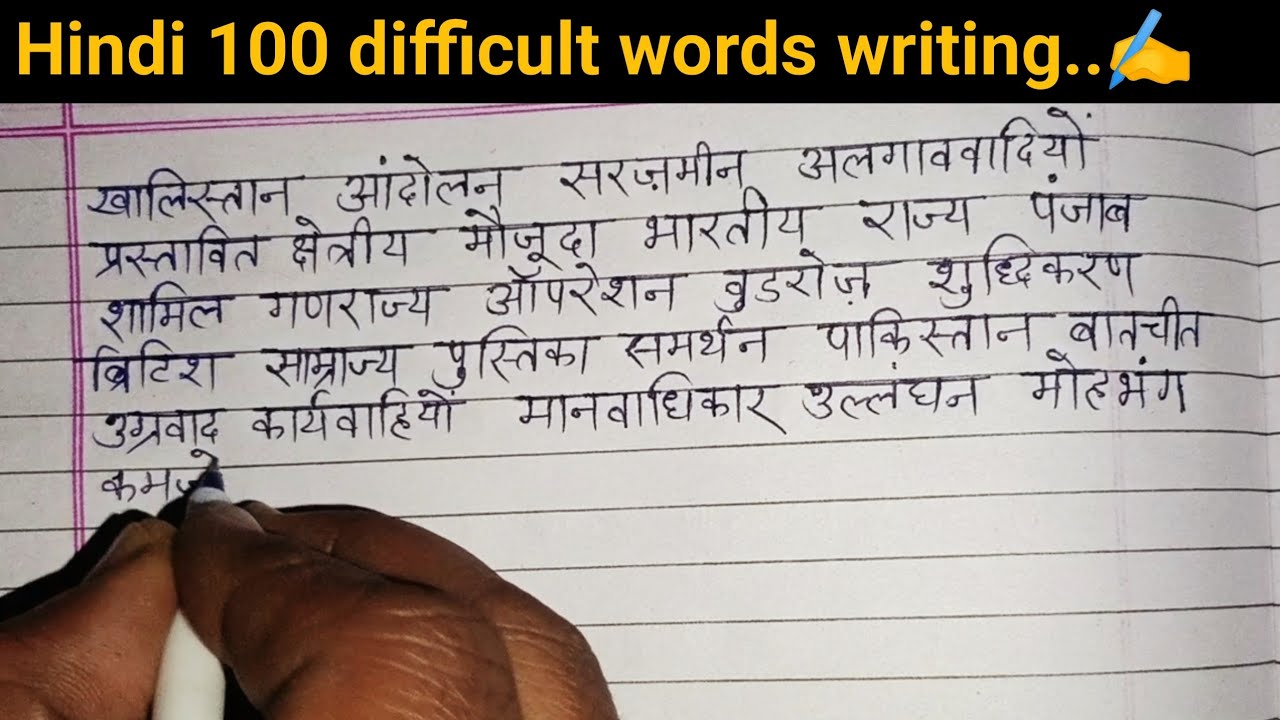 Hindi 100 difficult words writing..✍️
खालिस्तान आंदोलन सरज़मीन अलगाववादियों
प्रस्तावित क्षेत्रीय मौजूदा भारतीय राज्य पंजाब
शामिल गणराज्य ऑपरेशन वुडरोज़ शुद्धिकरण
ब्रिटिश साम्राज्य पुस्तिका समर्थन पाकिस्तान बातचीत
उग्रवाद कार्यवाहियों मानवाधिकार उल्लंघन मोहभंग